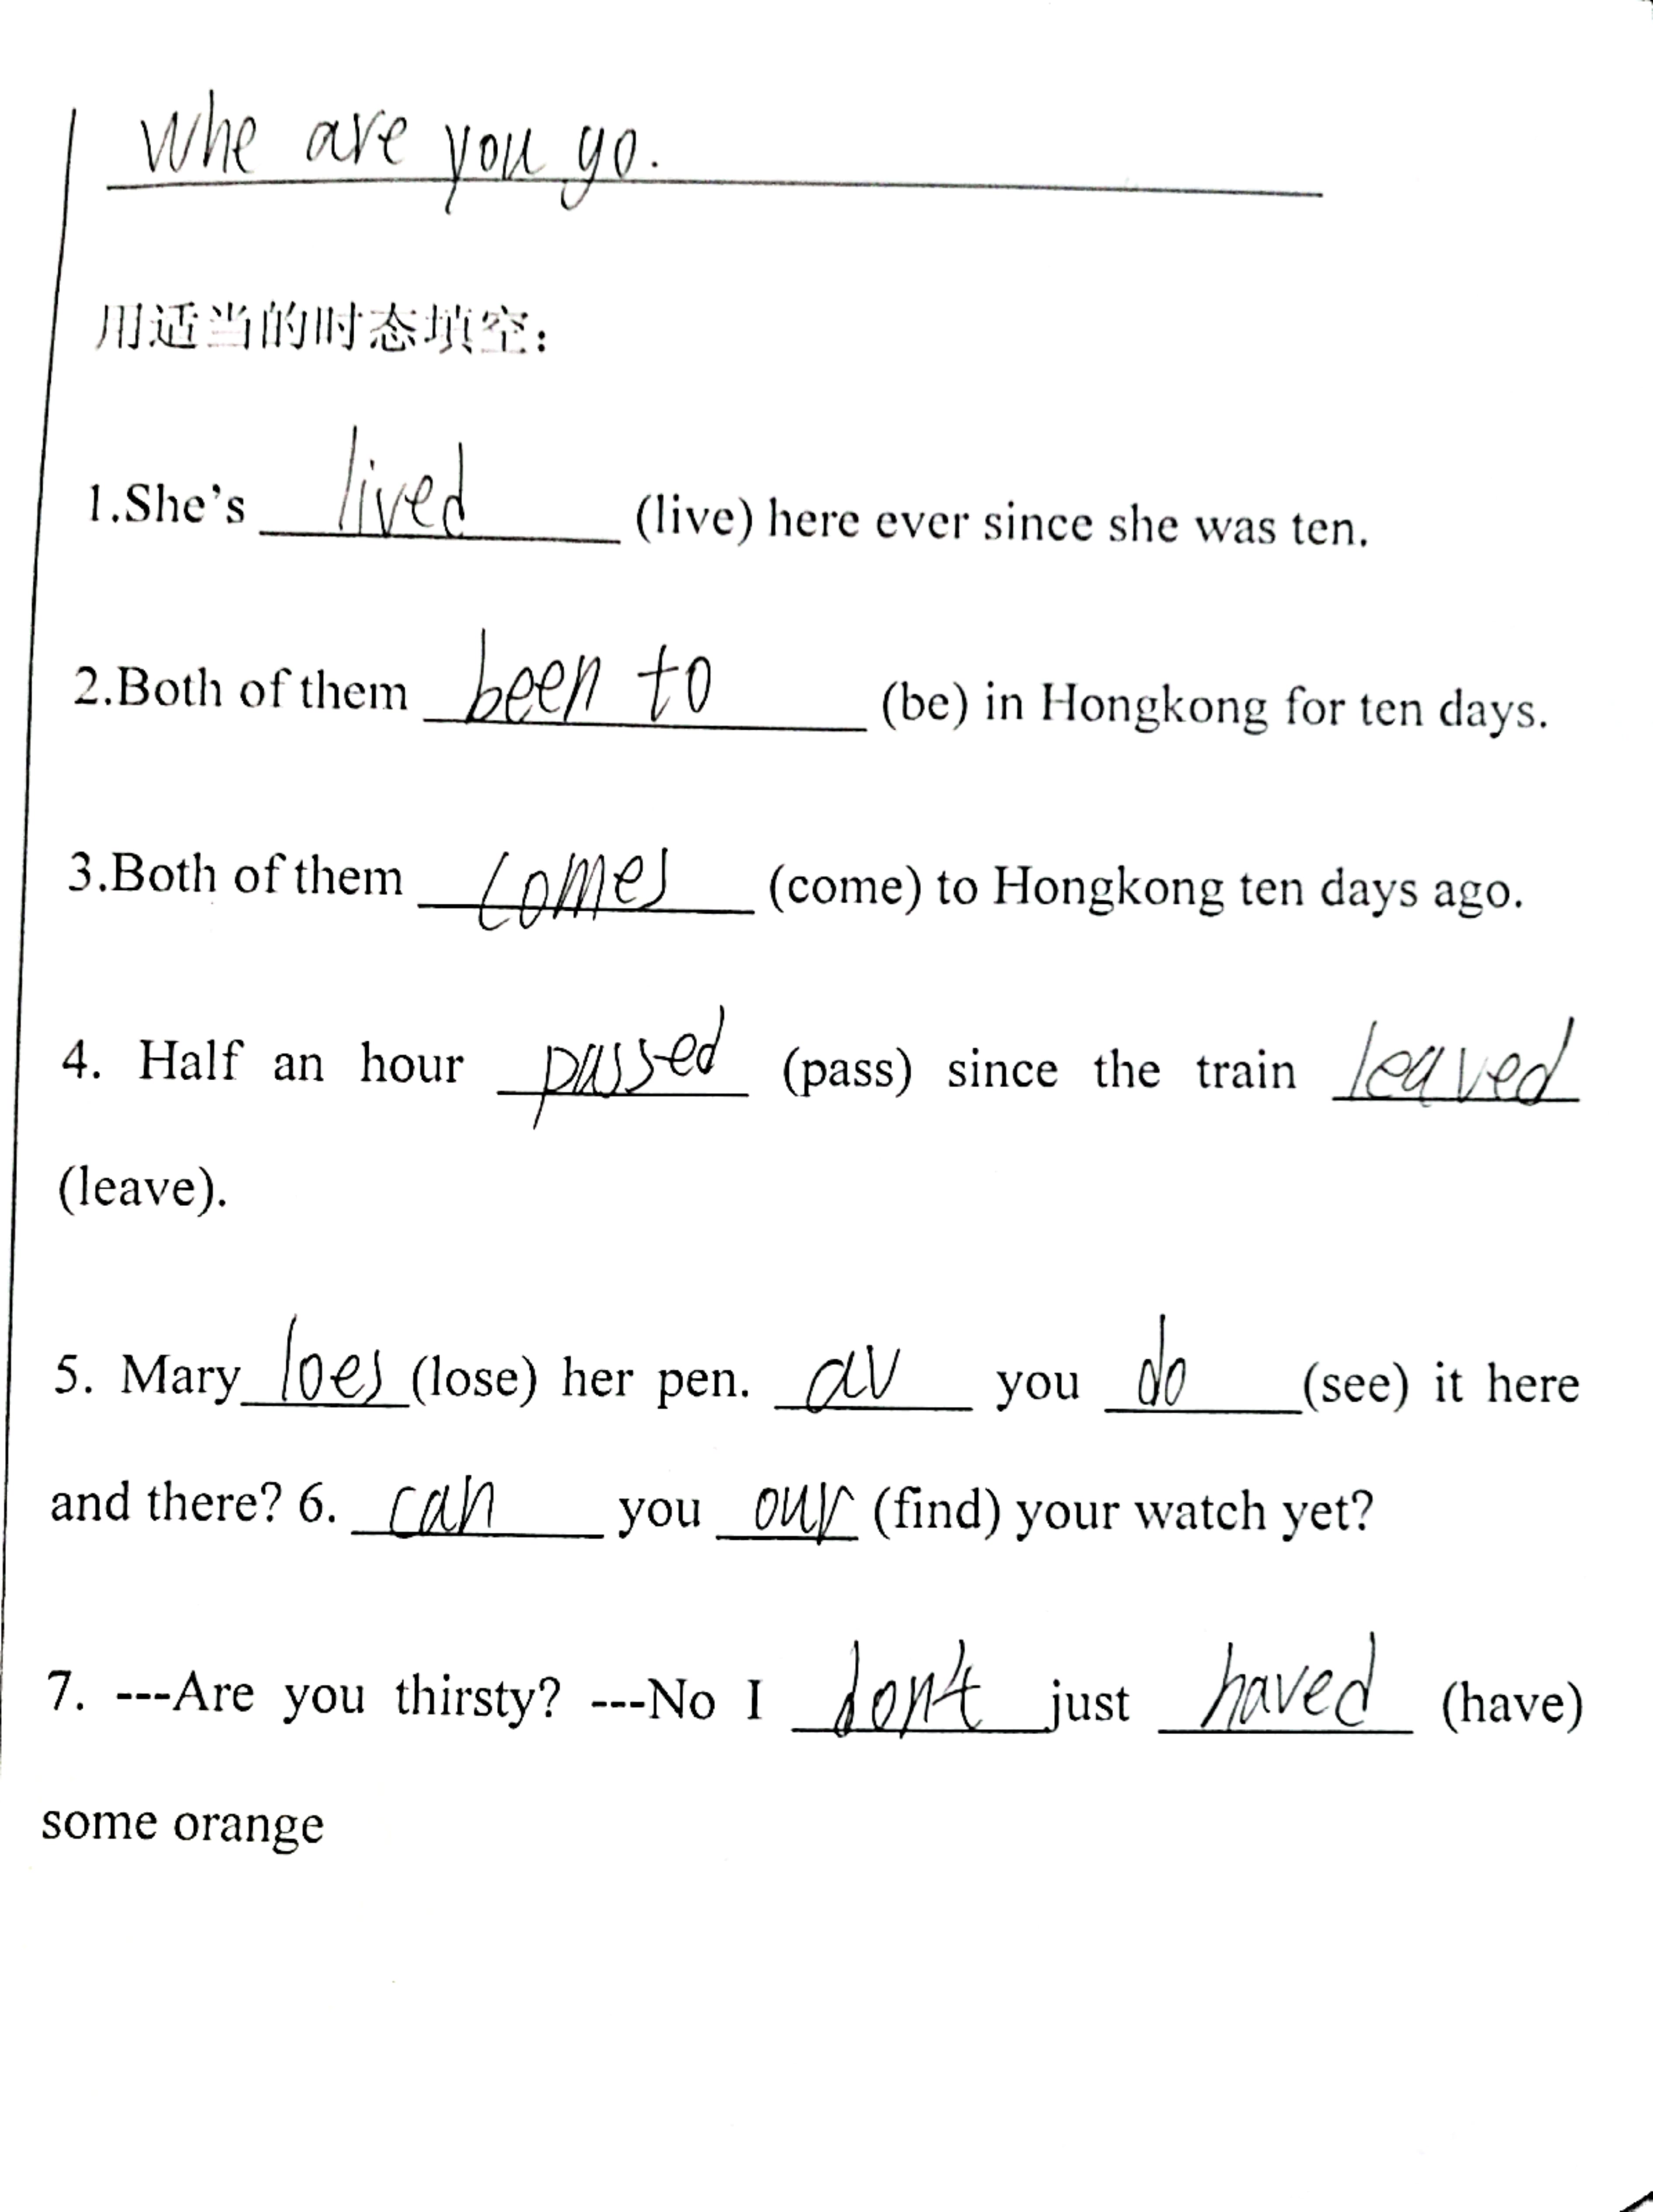 Whe are you go.
用适当的时态填空：
1.She's lived (live) here ever since she was ten.
2.Both of them been to (be) in Hongkong for ten days.
3.Both of them comes (come) to Hongkong ten days ago.
4. Half an hour passed (pass) since the train leaved
(leave).
5. Mary loes (lose) her pen. av you do (see) it here
and there? 6. can you our (find) your watch yet?
7. ---Are you thirsty? ---No I don't just haved (have)
some orange